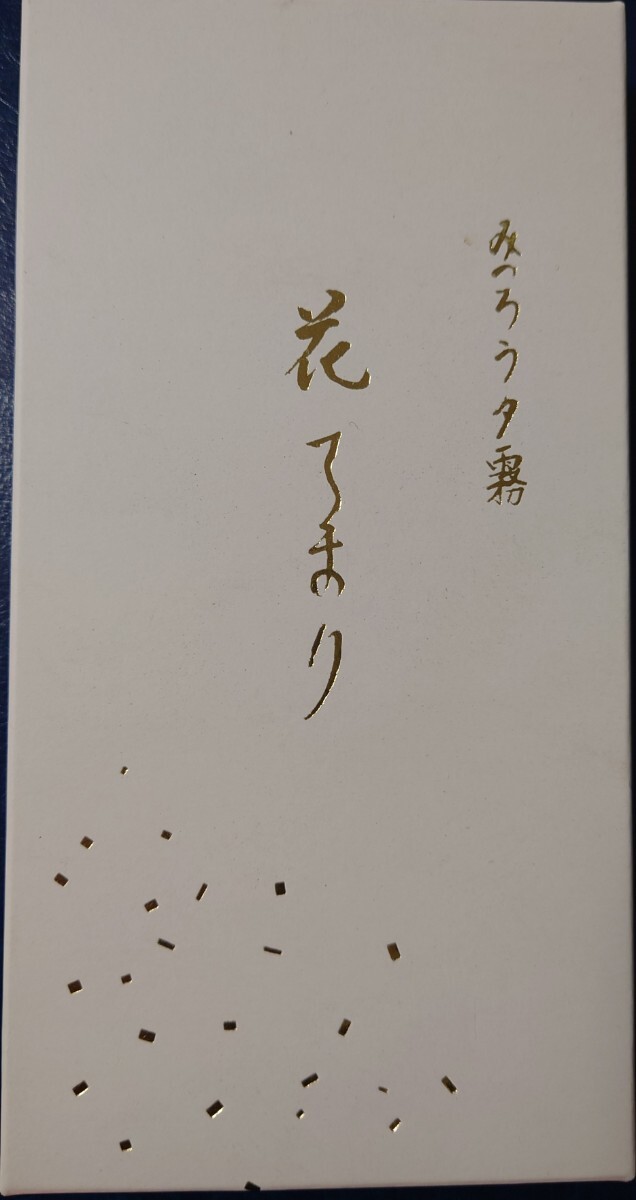 みつろう夕霧
花てまり